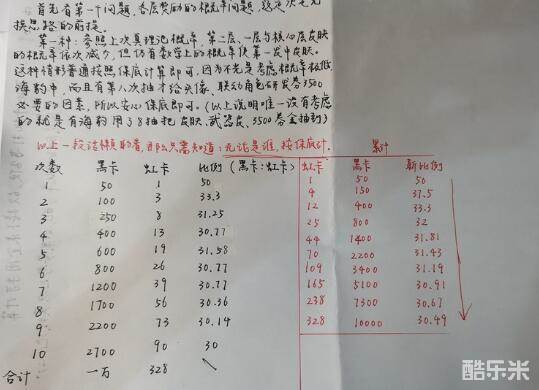 首先有第一个问题，各层奖励的概率问题，这是决定兑
换思路的前提。
第一种：参照上次真理记概率，第二层、一层与核心层皮肤
的概率依次减少，但仍有数学上的概率使第一发中皮肤。
这种情形普通按照保底计算即可，因为不光是考虑概率极低
海豹中，而且有第八次抽才给头像、联动角色研发券3500
必要的因素，所以安心保底即可。（以上说明唯一没有考虑
的就是有海豹用了8抽把皮肤、武器皮、3500券全抽到）
以上一段话懒的看，那么只需知道：无论是谁，按保底计.
累计
次数 黑卡 虹卡 比例 （黑卡：虹卡） 虹卡 黑卡 新比例
1 50 1 50 1 50 50
2 100 3 33.3 4 150 37.5
3 250 8 31.25 12 400 33.3
4 400 13 30.77 25 800 32
5 600 19 31.58 44 1400 31.81
6 800 26 30.77 70 2200 31.43
7 1200 39 30.77 109 3400 31.19
8 1700 56 30.36 165 5100 30.91
9 2200 73 30.14 238 7300 30.67
10 2700 90 30 328 10000 30.49
合计 一万 328
酷乐米